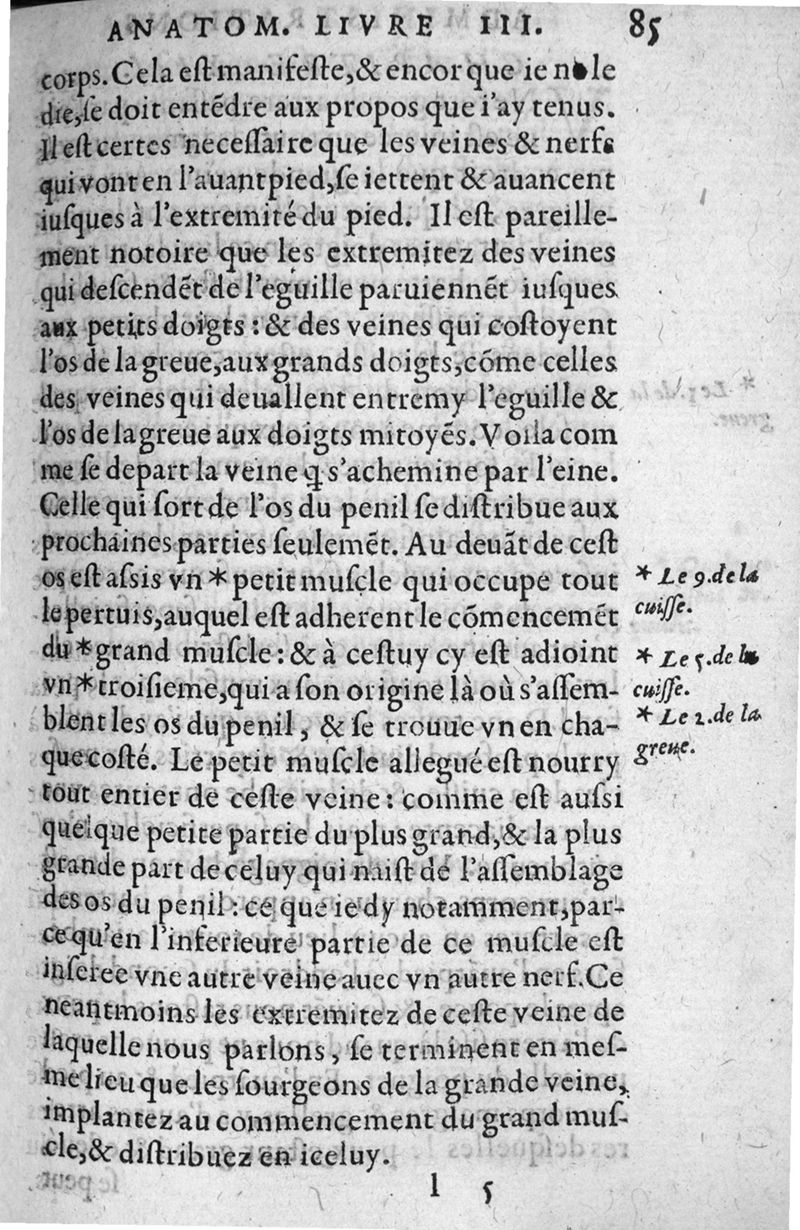 ANATOM. LIVRE III. 85
corps. Cela eſt manifeſte,& encor que ie ne le
die,ſe doit entẽdre aux propos que i'ay tenus.
Il eſt certes neceſſaire que les veines & nerfs
qui vont en l'auantpied,ſe iettent & auancent
iuſques à l'extremité du pied. Il eſt pareille-
ment notoire que les extremitez des veines
qui deſcendẽt de l'eguille paruiennẽt iuſques
aux petits doigts : & des veines qui coſtoyent
l'os de la greue,aux grands doigts,cõme celles
des veines qui deuallent entremy l'eguille &
l'os de la greue aux doigts mitoyẽs. Voila com
me ſe depart la veine q̃ s'achemine par l'eine.
Celle qui ſort de l'os du penil ſe diſtribue aux
prochaines parties ſeulemẽt. Au deuãt de ceſt
os eſt aſsis vn * petit muſcle qui occupe tout
le pertuis,auquel eſt adherent le cõmencemẽt
du * grand muſcle : & à ceſtuy cy eſt adioint
vn * troiſieme,qui a ſon origine là où s'aſſem-
blent les os du penil , & ſe trouue vn en cha-
que coſté. Le petit muſcle allegué eſt nourry
tout entier de ceſte veine : comme eſt auſsi
quelque petite partie du plus grand,& la plus
grande part de celuy qui naiſt de l'aſſemblage
des os du penil : ce que ie dy notamment,par-
ce qu'en l'inferieure partie de ce muſcle eſt
inſeree vne autre veine auec vn autre nerf. Ce
neantmoins les extremitez de ceſte veine de
laquelle nous parlons , ſe terminent en meſ-
me lieu que les ſourgeons de la grande veine,
implantez au commencement du grand muſ-
cle,& diſtribuez en iceluy.
* Le 9. de la
cuiſſe.
* Le 5. de la
cuiſſe.
* Le 2. de la
greue.
l 5